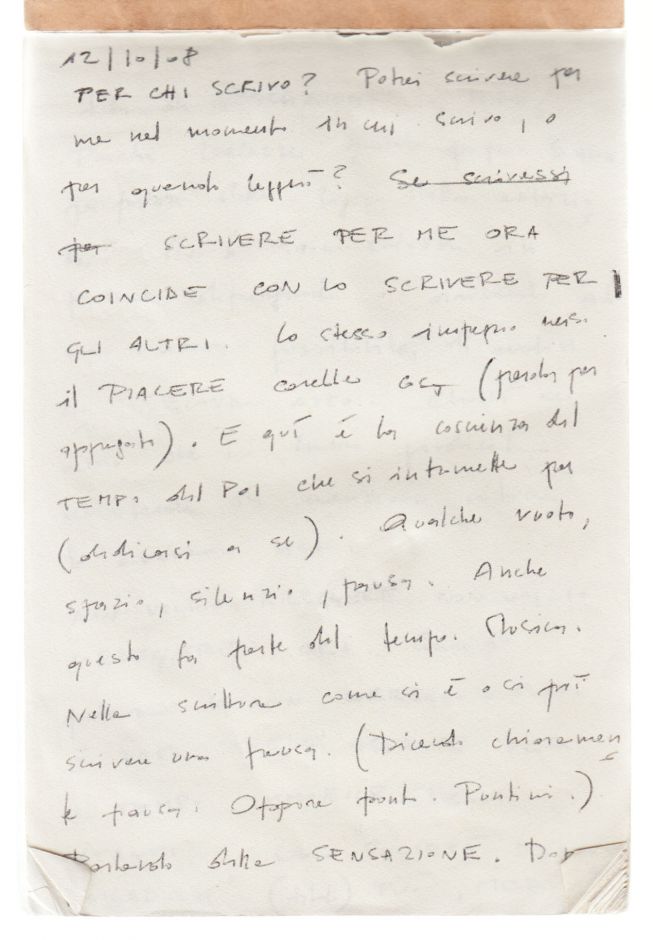 12/10/08
PER CHI SCRIVO? Potrei scrivere per
me nel momento in cui scrivo, o
per quando leggerò? Se scrivessi
per SCRIVERE PER ME ORA
COINCIDE CON LO SCRIVERE PER
GLI ALTRI. Lo stesso impegno
il PIACERE (parola per
appagato). E quì è la coscienza del
TEMPO del POI che si intromette per
(dedicarsi a se). Qualche vuoto,
spazio, silenzio, pausa. Anche
questo fa parte del tempo. Musica.
Nella scrittura come si è o si può
scrivere una pausa. (Dicendo chiaramen
te pausa. Oppure punto. Puntini.)
Parlando della SENSAZIONE.